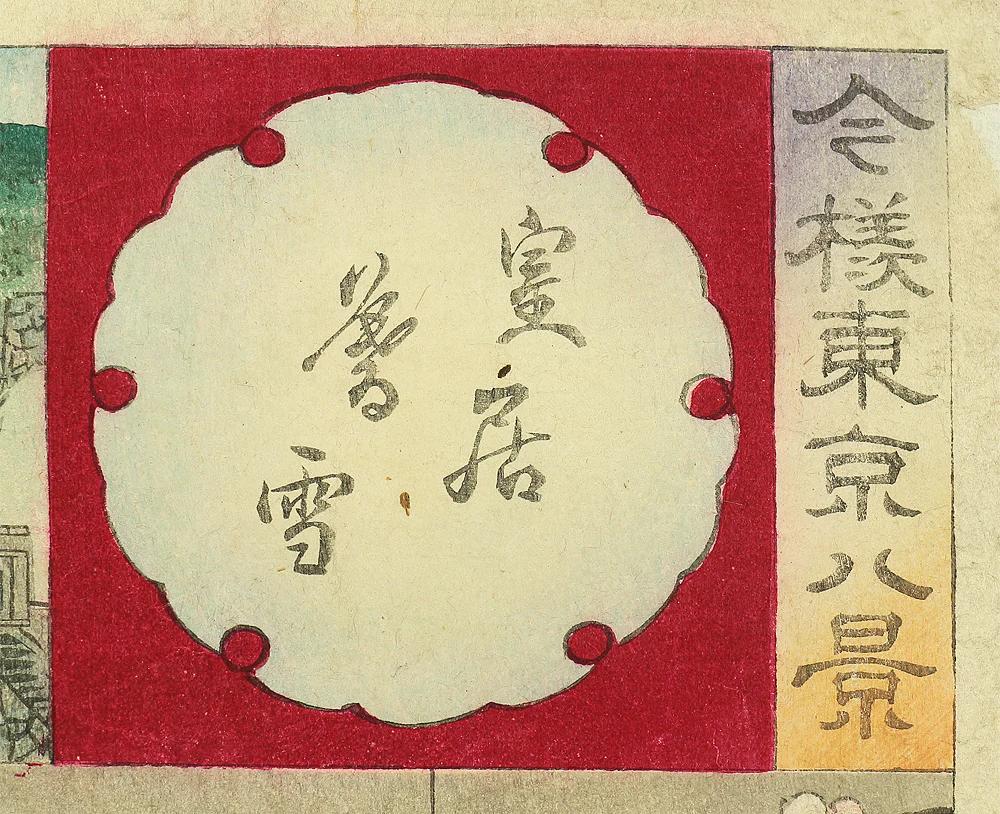 今様東京八景
皇居
暮雪